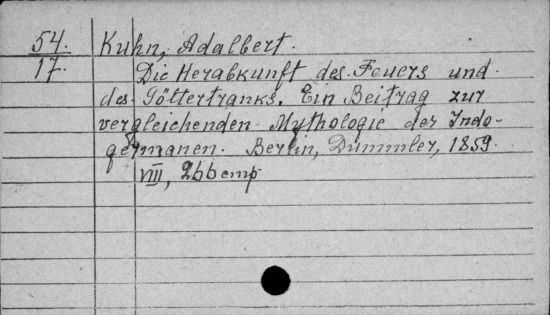 54.
17.
Kuhn, Adalbert.
Die Herabkunft des Feuers und
des Göttertranks. Ein Beitrag zur
vergleichenden Mythologie der Indo-
germanen. Berlin, Dümmler, 1859.
VIII, 266 cmp